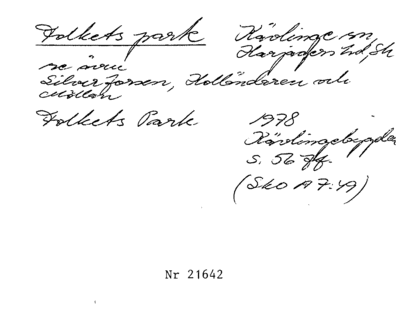 Folkets park
Kävlinge sn,
Harjagers hd, Sk
se även
Silverforsen, Holländaren och
Möllan
Folkets Park
1978
Kävlingebygden
s. 56 ff.
(Sko A 7:49)
Nr 21642